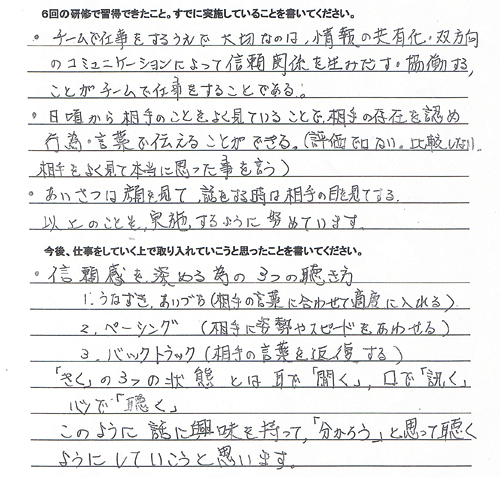 6回の研修で習得できたこと。すでに実施していることを書いてください。
・チームで仕事をするうえで大切なのは、情報の共有化・双方向
のコミュニケーションによって信頼関係を生みだす。協働する
ことがチームで仕事をすることである。
・日頃から相手のことをよく見ていることで、相手の存在を認め
行為・言葉で伝えることができる。(評価ではない。比較しない。
相手をよく見て本当に思った事を言う)
・あいさつは顔を見て、話をする時は相手の目を見てする。
以上のことを、実施するように努めています。
今後、仕事をしていく上で取り入れていこうと思ったことを書いてください。
・信頼感を深める為の3つの聴き方
1.うなずき、あいづち(相手の言葉に合わせて適度に入れる)
2.ペーシング (相手に姿勢やスピードをあわせる)
3.バックトラック(相手の言葉を返復する)
「きく」の3つの状態とは耳で「聞く」、口で「訊く」
心で「聴く」
このように話に興味を持って、「分かろう」と思って聴く
ようにしていこうと思います。